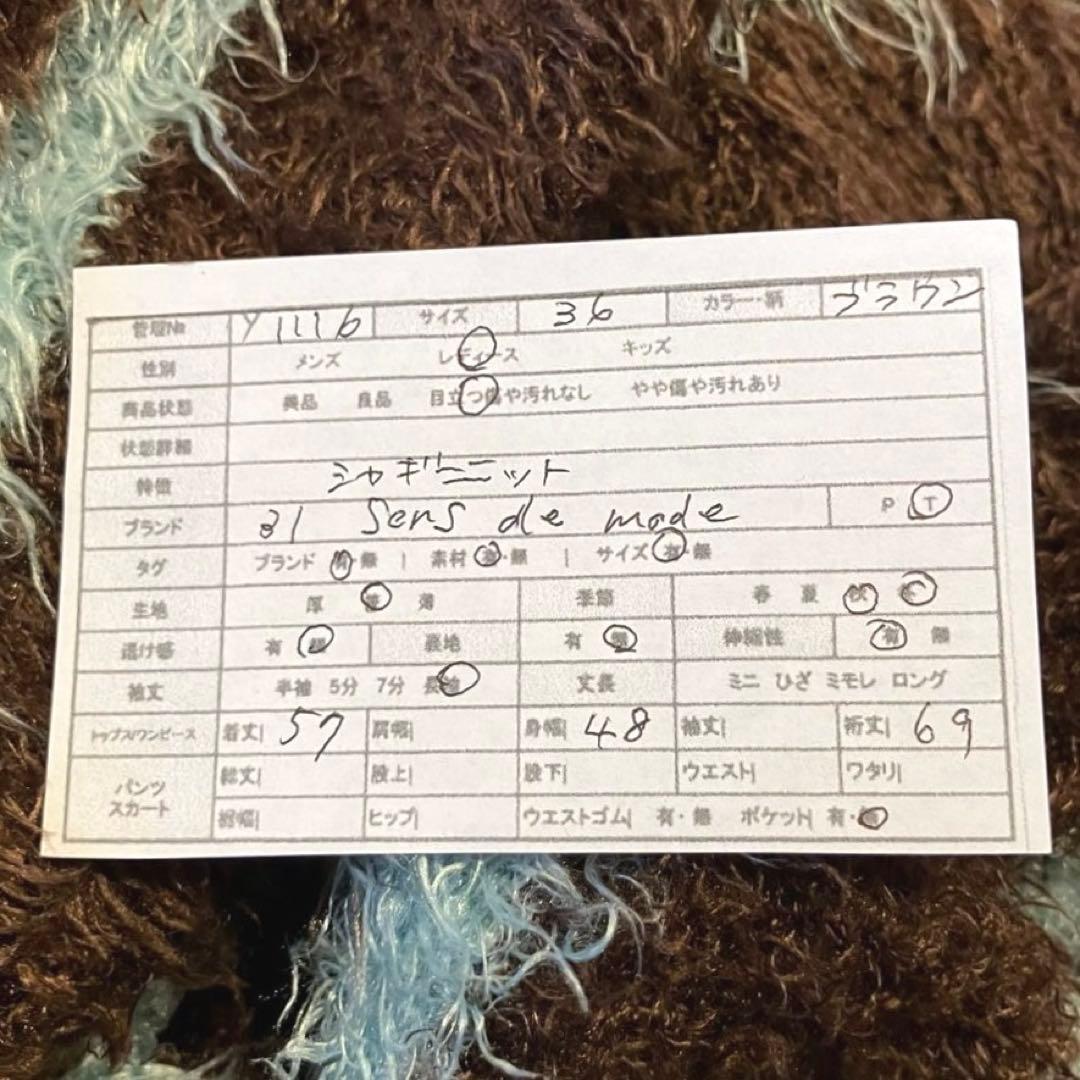 管理№ Y1116 サイズ 36 カラー・柄 ブラウン
性別 メンズ レディース キッズ
商品状態 美品 良品 目立つ傷や汚れなし やや傷や汚れあり
状態詳細
特徴 シャギーニット
ブランド 31 Sens de mode P T
タグ ブランド 有・無 | 素材 有・無 | サイズ 有・無
生地 厚 普 薄 季節 春 夏 秋 冬
透け感 有 無 裏地 有 無 伸縮性 有 無
袖丈 半袖 5分 7分 長袖 丈長 ミニ ひざ ミモレ ロング
トップス/ワンピース 着丈| 57 肩幅| 身幅| 48 袖丈| 裄丈| 69
パンツ スカート 総丈| 股上| 股下| ウエスト| ワタリ|
裾幅| ヒップ| ウエストゴム| 有・無 ポケット| 有・無